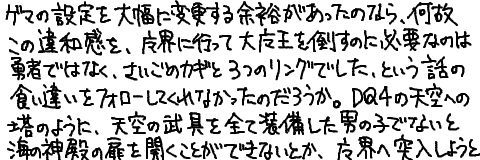 ゲマの設定を大幅に変更する余裕があったのなら、何故
この違和感を、魔界に行って大魔王を倒すのに必要なのは
勇者ではなく、さいごのカギと3つのリングでした、という話の
食い違いをフォローしてくれなかったのだろうか。DQ4の天空への
塔のように、天空の武具を全て装備した男の子でないと
海の神殿の扉を開くことができないとか、魔界へ突入しようと